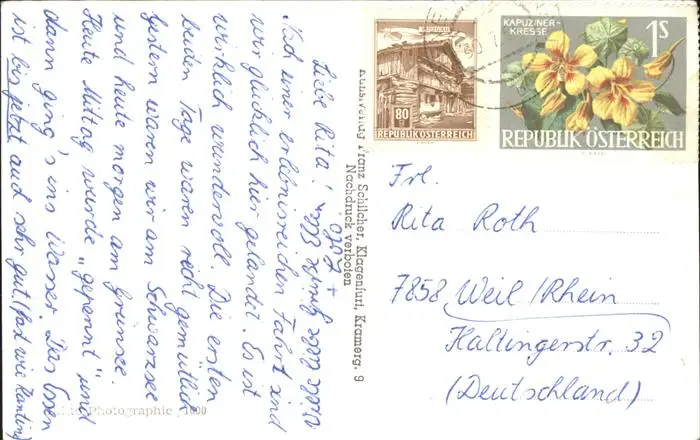 Liebe Rita!
Nach einer erlebnisreichen Fahrt sind
wir glücklich hier gelandet. Es ist
wirklich wundervoll. Die ersten
beiden Tage waren recht gemütlich
Gestern waren wir am Schwarzsee
und heute morgen am Grünsee.
Heute Mittag wurde "gepennt" und
dann ging's ins Wasser. Das Essen
ist bis jetzt auch sehr gut! (fast wie Kantine)
Franz Schilcher, Klagenfurt, Kramerg. 9
Nachdruck verboten
Photographie 1000
80
REPUBLIK ÖSTERREICH
KAPUZINER-
KRESSE
1S
REPUBLIK ÖSTERREICH
Frl.
Rita Roth
7858 Weil/Rhein
Haltingerstr. 32
(Deutschland)